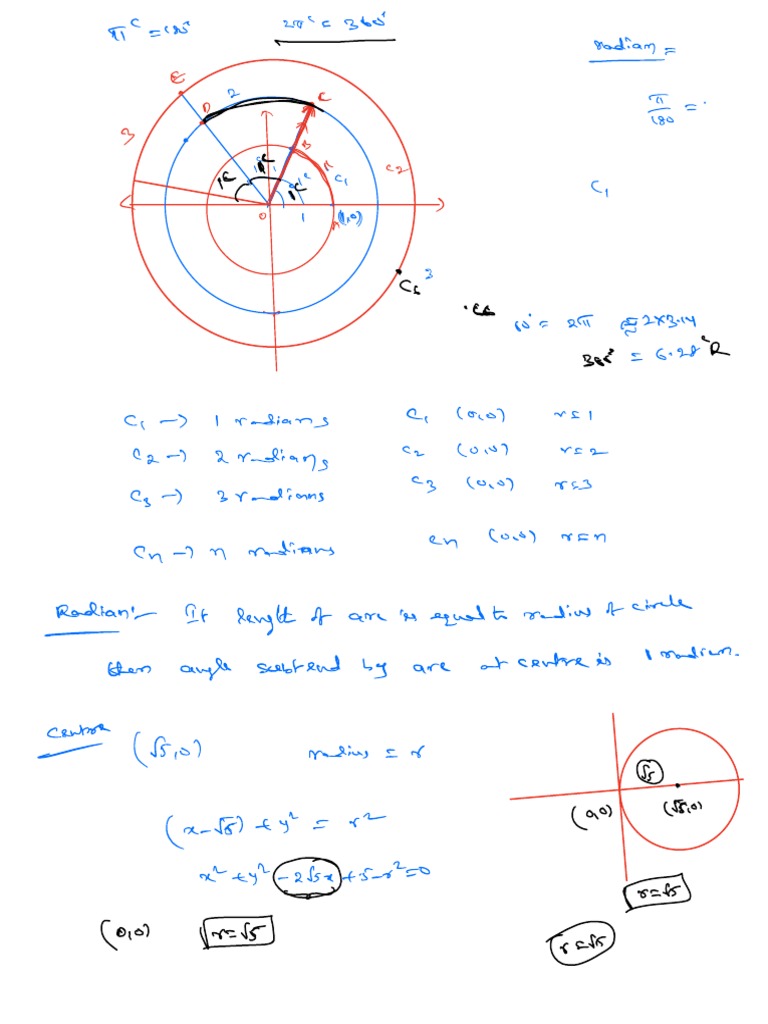 π^c = 180°
2π^c = 360°
radian =
π/180 =
E
D
2
C
3
B
C2
1^c
1^c
1^c
C1
C1
0
1
A(1,0)
C3
3
= 2π ≅ 2×3.14
360° = 6.28^c R
C1 → 1 radians C1 (0,0) r=1
C2 → 2 radians C2 (0,0) r=2
C3 → 3 radians C3 (0,0) r=3
Cn → n radians Cn (0,0) r=n
Radian:- If length of arc is equal to radius of circle
then angle subtend by arc at centre is 1 radian.
Centre (√5,0) radius = r
√5
(0,0) (√5,0)
(x-√5) + y² = r²
x² + y² -2√5x +5-r²=0
r=√5
(0,0) r=√5
r=√5